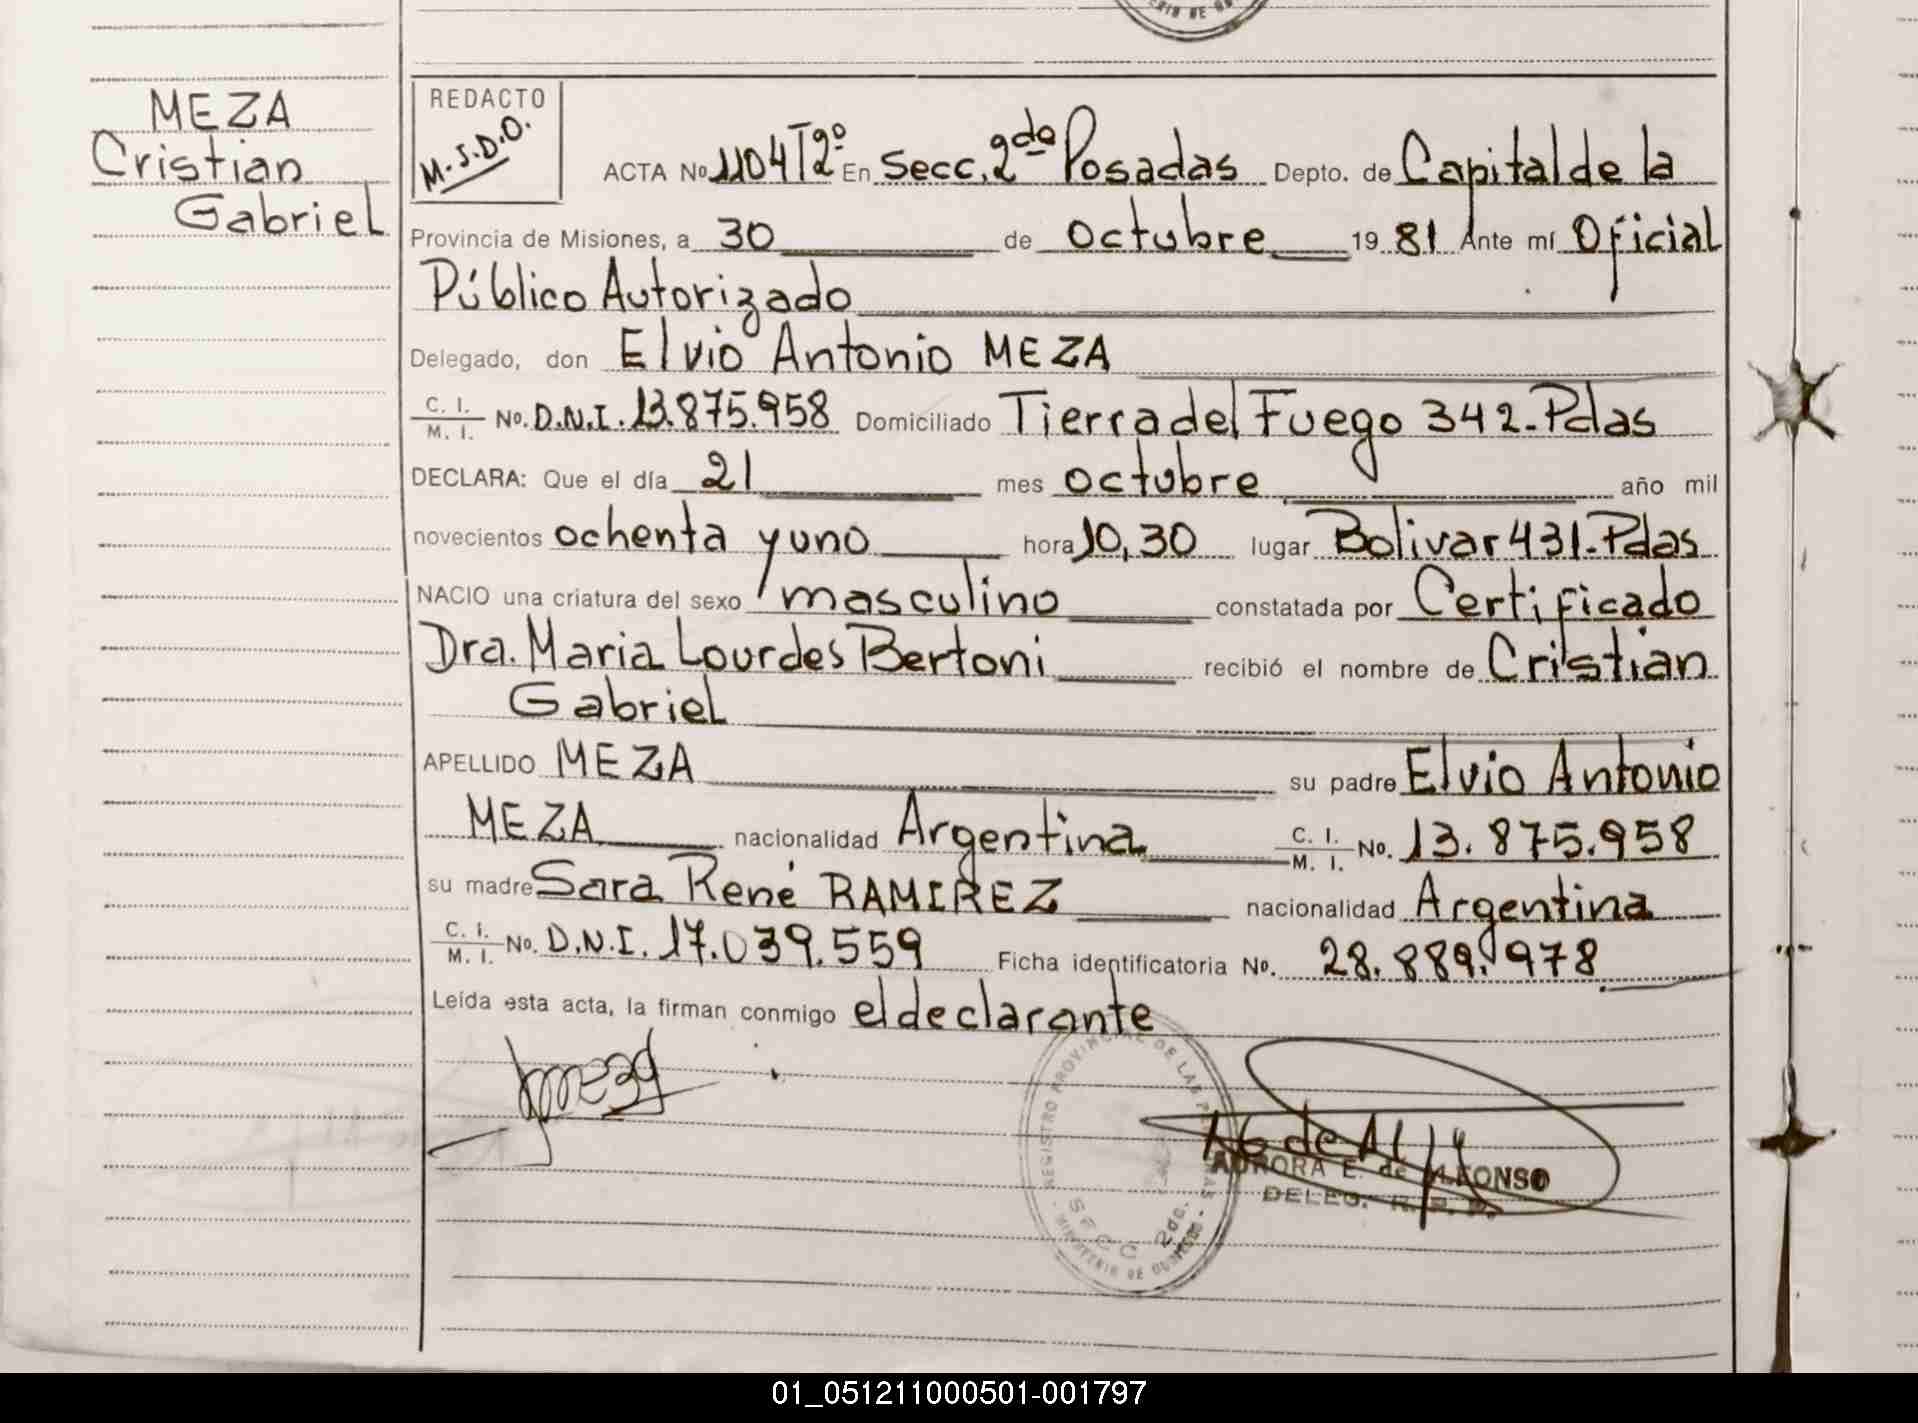 MEZA
Cristian
Gabriel
REDACTO
M.S.D.O.
ACTA No 1104 T2º En Secc. 2da Posadas Depto. de Capital de la
Provincia de Misiones, a 30 de octubre 19 81 Ante mí Oficial
Público Autorizado
Delegado, don Elvio Antonio MEZA
C. I. M. I. No. D.N.I. 13.875.958 Domiciliado Tierra del Fuego 342-Pdas
DECLARA: Que el día 21 mes octubre año mil
novecientos ochenta y uno hora 10,30 lugar Bolivar 431-Pdas
NACIO una criatura del sexo masculino constatada por Certificado
Dra. Maria Lourdes Bertoni recibió el nombre de Cristian
Gabriel
APELLIDO MEZA su padre Elvio Antonio
MEZA nacionalidad Argentina C. I. M. I. No. 13.875.958
su madre Sara René RAMIREZ nacionalidad Argentina
C. I. M. I. No. D.N.I. 17.039.559 Ficha identificatoria No. 28.889.978
Leída esta acta, la firman conmigo el declarante
REGISTRO PROVINCIAL DE LAS PERSONAS
SECC 2da.
AURORA E. de ALFONSO
DELEG. R. P. P.
01_051211000501-001797